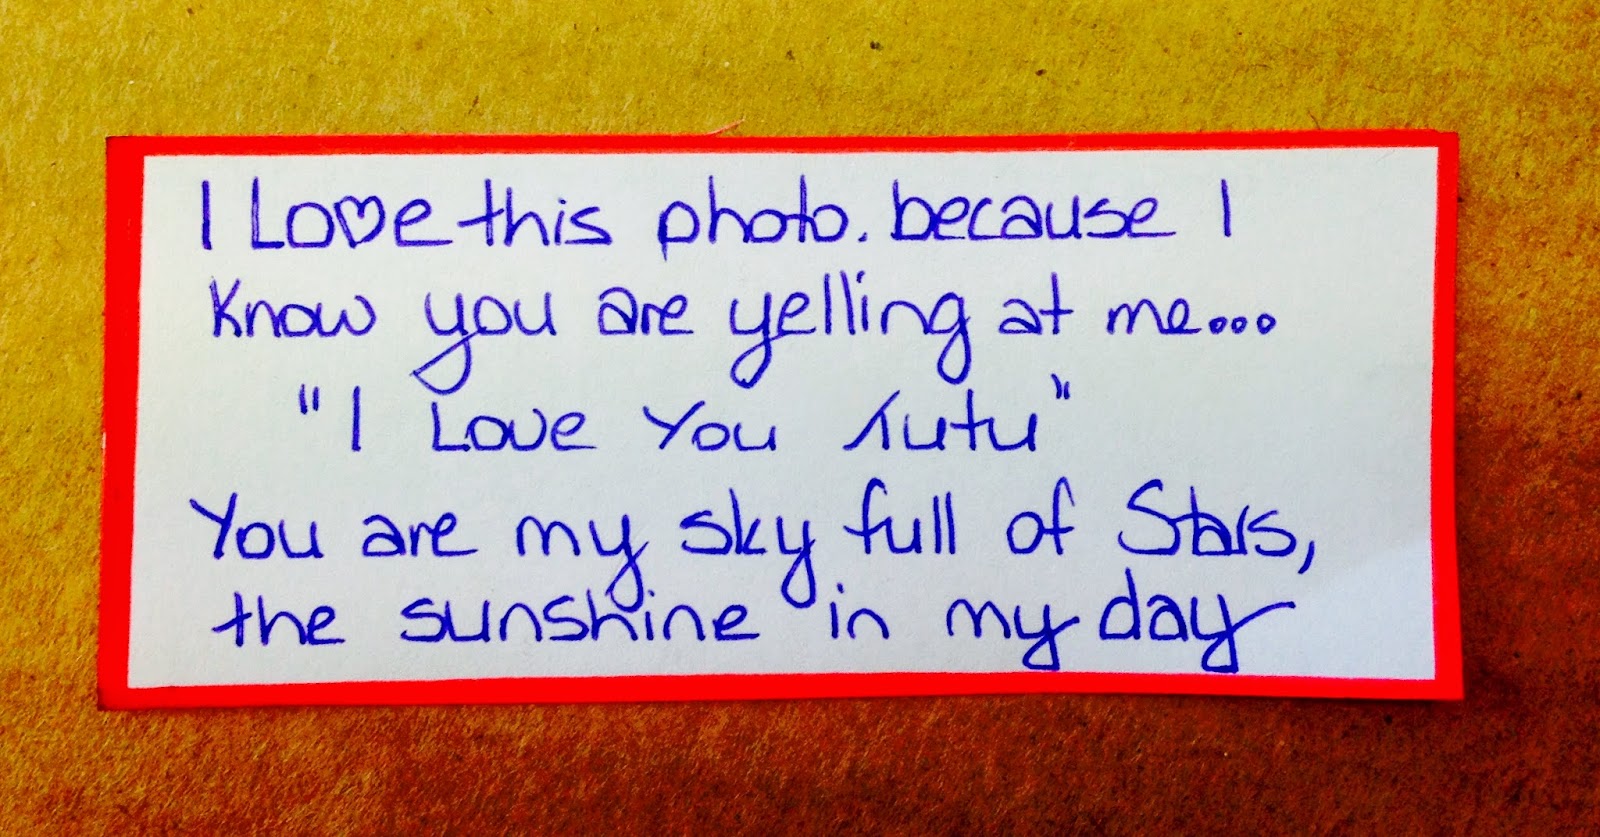 I Love this photo. because I
Know you are yelling at me...
"I Love You Tutu"
You are my sky full of Stars,
the sunshine in my day